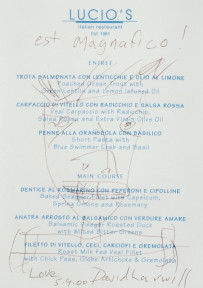 LUCIO'S
italian restaurant
Est. 1981
est Magnafico!
ENTREE
TROTA SALMONATA CON LENTICCHIE E OLIO AL LIMONE
Poached Ocean Trout with
Green Lentils and Lemon Infused Oil
CARPACCIO DI VITELLO CON RADICCHIO E SALSA ROSSA
Veal Carpaccio with Radicchio
Salsa Rossa and Extra Virgin Olive Oil
PENNE ALLA GRANSEOLA CON BASILICO
Short Pasta with
Blue Swimmer Crab and Basil
MAIN COURSE
DENTICE AL ROSMARINO CON PEPERONI E CIPOLLINE
Baked Snapper Fillet with Capsicum,
Spring Onions and Rosemary
ANATRA ARROSTO AL BALSAMICO CON VERDURE AMARE
Balsamic Vinegar Roasted Duck
with Wilted Bitter Greens
FILETTO DI VITELLO, CECI, CARCIOFI E GREMOLATA
Roast Milk Fed Veal Fillet
with Chick Peas, Globe Artichoke & Gremolata
Love
5.9.00